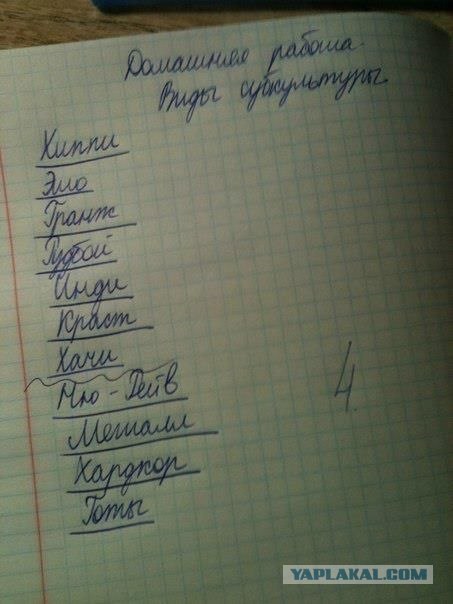 Домашняя работа.
Виды субкультуры.
Хиппи
Эмо
Гранж
Рудбой
Инди
Краст
Хачи
Нью-Вейв
Металл
Хардкор
Готы
4
YAPLAKAL.COM